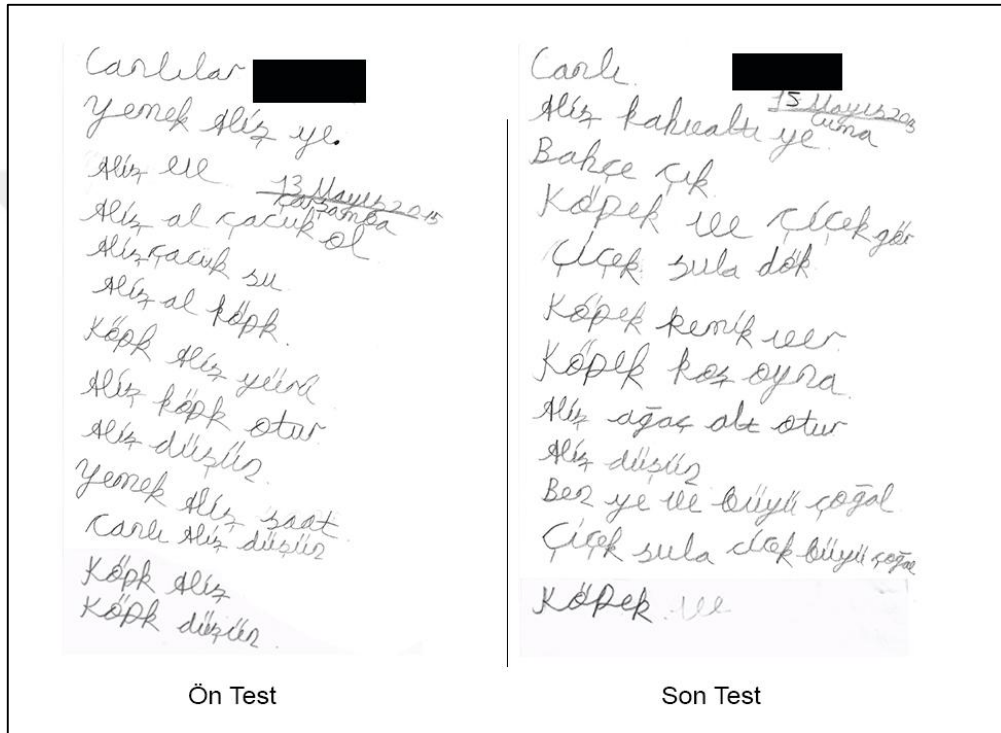 Canlılar
Yemek Aliş ye.
Aliş ve
13 Mayıs 2015
Çarşamba
Aliş al çacuk ol
Aliş çacuk su
Aliş al köpk.
Köpk Aliş yürü
Aliş köpk otur
Aliş düşün.
Yemek Aliş saat
Canlı Aliş düşün
Köpk Aliş
Köpk düşün.
Ön Test
Canlı.
15 Mayıs
Cuma
Aliş kahvaltı ye
Bahçe çık
Köpek ve çiçek gör
Çiçek sula dök
Köpek kemik ver
Köpek koş oyna
Aliş ağaç alt otur
Aliş düşün
Ben ye ve büyü çoğal
Çiçek sula cicek büyü çoğal
Köpek ve
Son Test